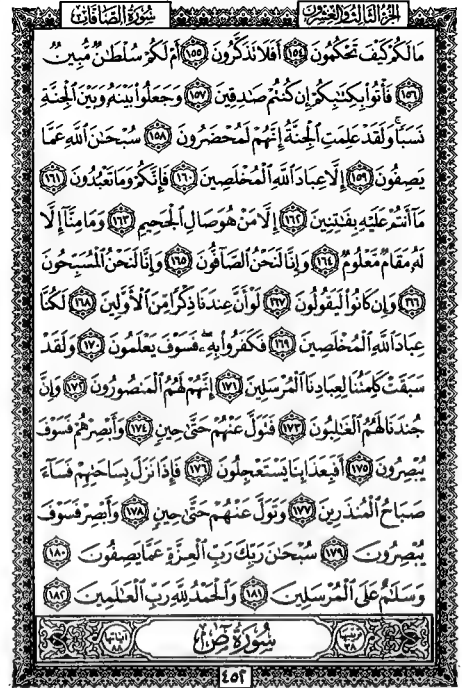 الجُزْءُ الثَّالِثُ وَالعِشْرُونَ
سُورَةُ الصَّافَّاتِ
مَا لَكُمْ كَيْفَ تَحْكُمُونَ ١٥٤ أَفَلَا تَذَكَّرُونَ ١٥٥ أَمْ لَكُمْ سُلْطَٰنٌ مُّبِينٌ
١٥٦ فَأْتُوا۟ بِكِتَٰبِكُمْ إِن كُنتُمْ صَٰدِقِينَ ١٥٧ وَجَعَلُوا۟ بَيْنَهُۥ وَبَيْنَ ٱلْجِنَّةِ
نَسَبًا ۚ وَلَقَدْ عَلِمَتِ ٱلْجِنَّةُ إِنَّهُمْ لَمُحْضَرُونَ ١٥٨ سُبْحَٰنَ ٱللَّهِ عَمَّا
يَصِفُونَ ١٥٩ إِلَّا عِبَادَ ٱللَّهِ ٱلْمُخْلَصِينَ ١٦٠ فَإِنَّكُمْ وَمَا تَعْبُدُونَ ١٦١
مَآ أَنتُمْ عَلَيْهِ بِفَٰتِنِينَ ١٦٢ إِلَّا مَنْ هُوَ صَالِ ٱلْجَحِيمِ ١٦٣ وَمَا مِنَّآ إِلَّا
لَهُۥ مَقَامٌ مَّعْلُومٌ ١٦٤ وَإِنَّا لَنَحْنُ ٱلصَّآفُّونَ ١٦٥ وَإِنَّا لَنَحْنُ ٱلْمُسَبِّحُونَ
١٦٦ وَإِن كَانُوا۟ لَيَقُولُونَ ١٦٧ لَوْ أَنَّ عِندَنَا ذِكْرًا مِّنَ ٱلْأَوَّلِينَ ١٦٨ لَكُنَّا
عِبَادَ ٱللَّهِ ٱلْمُخْلَصِينَ ١٦٩ فَكَفَرُوا۟ بِهِۦ ۖ فَسَوْفَ يَعْلَمُونَ ١٧٠ وَلَقَدْ
سَبَقَتْ كَلِمَتُنَا لِعِبَادِنَا ٱلْمُرْسَلِينَ ١٧١ إِنَّهُمْ لَهُمُ ٱلْمَنصُورُونَ ١٧٢ وَإِنَّ
جُندَنَا لَهُمُ ٱلْغَٰلِبُونَ ١٧٣ فَتَوَلَّ عَنْهُمْ حَتَّىٰ حِينٍ ١٧٤ وَأَبْصِرْهُمْ فَسَوْفَ
يُبْصِرُونَ ١٧٥ أَفَبِعَذَابِنَا يَسْتَعْجِلُونَ ١٧٦ فَإِذَا نَزَلَ بِسَاحَتِهِمْ فَسَآءَ
صَبَاحُ ٱلْمُنذَرِينَ ١٧٧ وَتَوَلَّ عَنْهُمْ حَتَّىٰ حِينٍ ١٧٨ وَأَبْصِرْ فَسَوْفَ
يُبْصِرُونَ ١٧٩ سُبْحَٰنَ رَبِّكَ رَبِّ ٱلْعِزَّةِ عَمَّا يَصِفُونَ ١٨٠
وَسَلَٰمٌ عَلَى ٱلْمُرْسَلِينَ ١٨١ وَٱلْحَمْدُ لِلَّهِ رَبِّ ٱلْعَٰلَمِينَ ١٨٢
ترتيبها ٣٨
سُورَةُ صٓ
آياتها ٨٨
٤٥٢